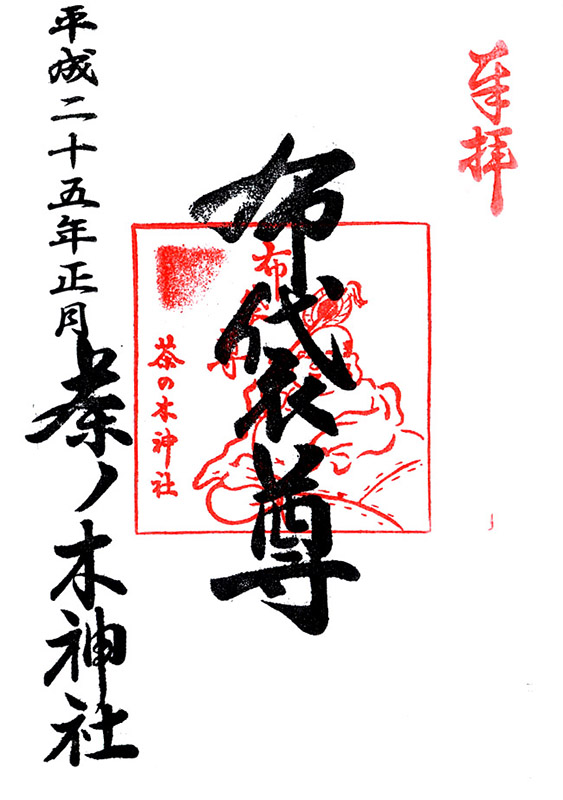 奉拝
布袋尊
布袋尊
茶の木神社
平成二十五年正月
茶ノ木神社